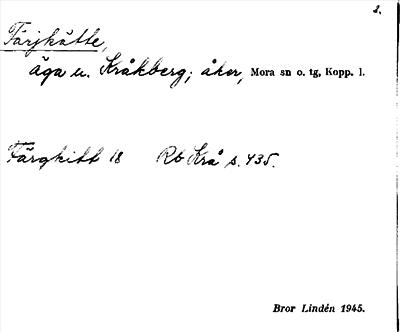 2.
Färjkätte,
äga u. Kråkberg; åker, Mora sn o. tg, Kopp. l.
Färgkitt 18 Rb Krå s. 435.
Bror Lindén 1945.